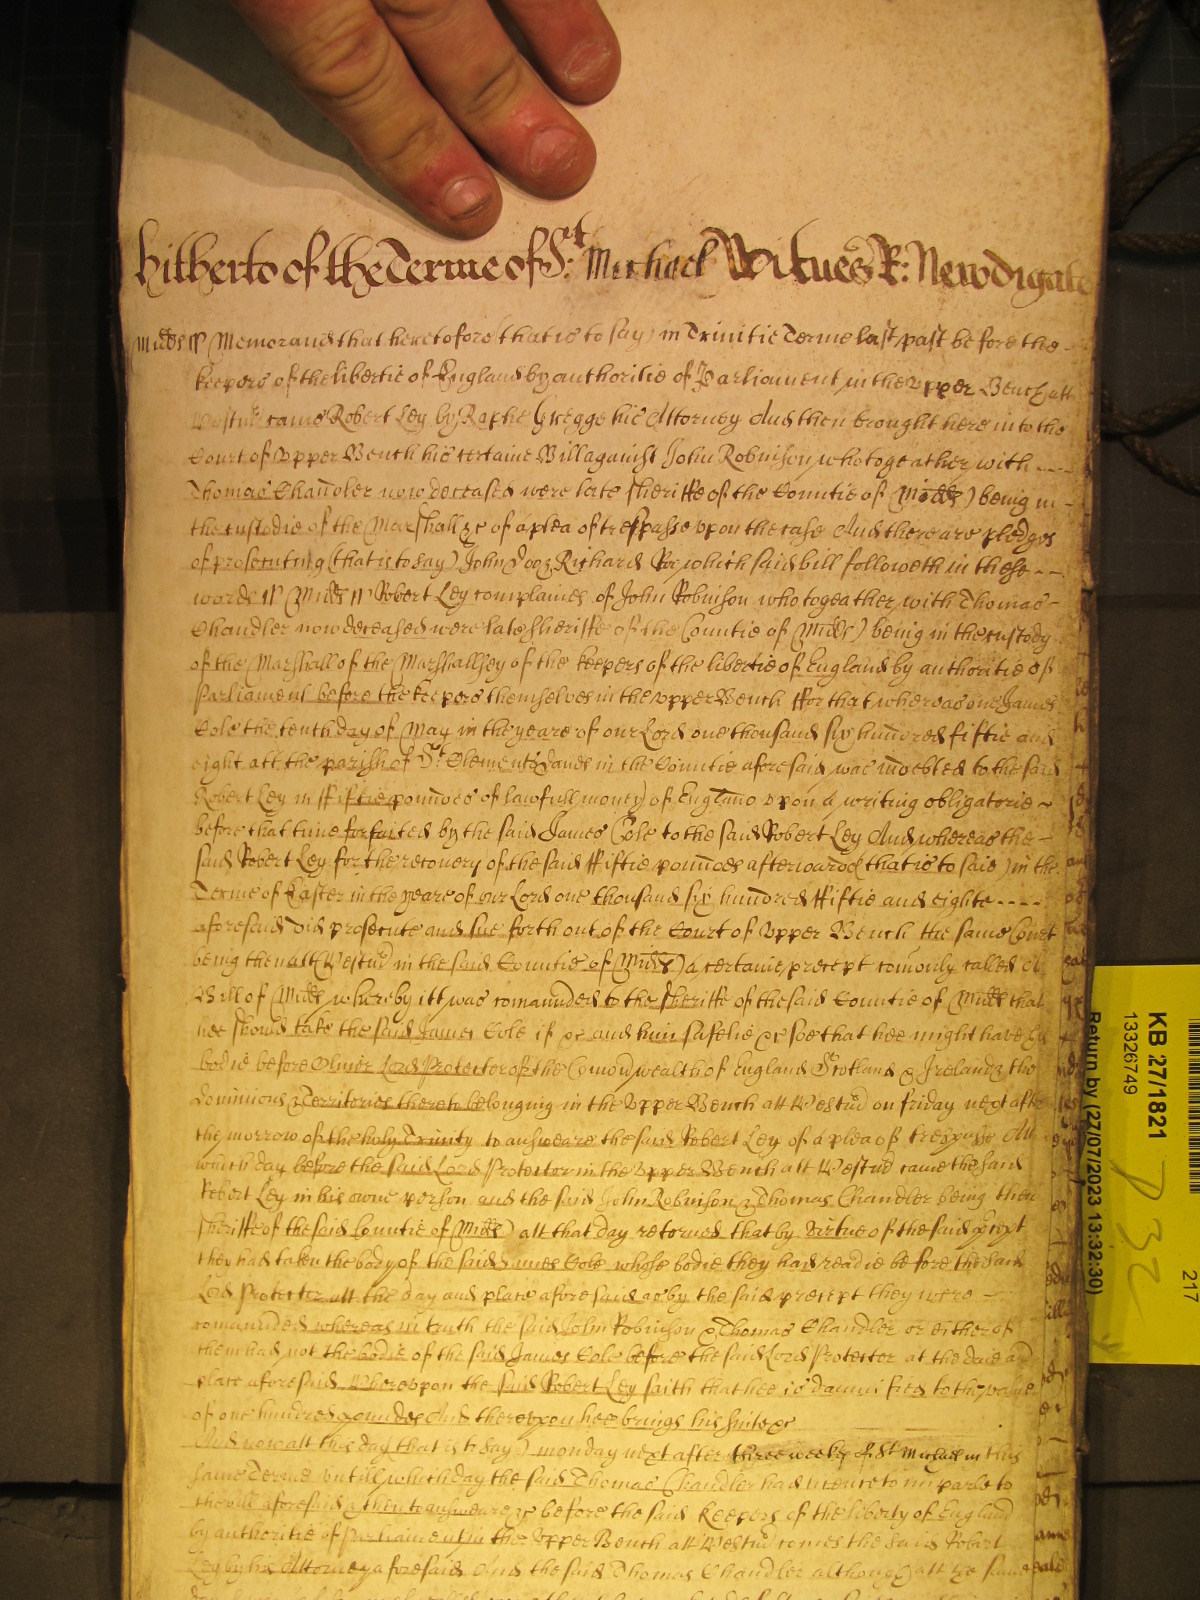 hitherto of the Terme of St. Michael Witnes R: Newdigate
Midds ss Memorand that heretofore that is to say) in Trinitie Terme last past before the
keepers of the libertie of England by authoritie of Parliament in the upper Bench att
Westm came Robert Ley by Raphe Gregge his Attorney And then brought here into the
Court of Upper Bench his certaine Bill against John Robinson who togeather with ----
Thomas Chandler now deceased were late sheriffe of the Countie of (Midds) being in -
the custodie of the Marshall &c of a plea of trespasse upon the case And there are pledges
of prosecuting (that is to say) John Doo & Richard Roe which said bill followeth in these --
words ss Midds ss Robert Ley complaines of John Robinson who togeather with Thomas -
Chandler now deceased were late sheriffe of the Countie of (Midds) being in the custody
of the Marshall of the Marshallsey of the keepers of the libertie of England by authoritie of
Parliament before the keepers themselves in the upper Bench ffor that whereas one James
Cole the tenth day of May in the yeare of our Lord one thousand six hundred fiftie and
eight att the parish of St. Clement Danes in the Countie aforesaid was indebted to the said
Robert Ley in ffiftie pounds of lawfull money of England upon a writing obligatorie ~
before that time forfaited by the said James Cole to the said Robert Ley And whereas the -
said Robert Ley for the recovery of the said ffiftie pounds afterward (that is to said) in the
Terme of Easter in the yeare of our Lord one thousand six hundred ffiftie and eighte ----
aforesaid did prosecute and sue forth out of the Court of Upper Bench the same Court
being then att Westm in the said Countie of (Midds) a certaine precept comonly called a
Bill of Midds whereby itt was comaunded to the sheriffe of the said Countie of Midds that
hee should take the said James Cole if &c and him safelie &c soe that hee might have his
bodie before Oliver Lord Protector of the Comonwealth of England Scotland & Ireland & the
dominions & Territories thereto belonging in the Upper Bench att Westm on friday next after
the morrow of the holy Trinity to answeare the said Robert Ley of a plea of trespasse Att
which day before the said Lord Protector in the upper Bench att Westm came the said
Robert Ley in his owne person and the said John Robinson & Thomas Chandler being then
sheriffe of the said Countie of (Midds) att that day retorned that by virtue of the said precept
they had taken the body of the said James Cole whose bodie they had readie before the said
Lord Protector att the day and place aforesaid as by the said precept they were -
comaunded whereas in truth the said John Robinson & Thomas Chandler or either of
them had not the bodie of the said James Cole before the said Lord Protector at the daie and
place aforesaid Whereupon the said Robert Ley saith that hee is damnified to the value
of one hundred pounds And thereupon hee brings his suite &c
And now att this day that is to say) monday next after three weekes of St Michael in this
same Terme untill which day the said Thomas Chandler had licence to imparle to
the bill aforesaid & then to answeare &c before the said Keepers of the liberty of England
by authoritie of Parliament in the Upper Bench att Westm comes the said Robert
Ley by his Attorney aforesaid And the said Thomas Chandler although att the same
KB 27/1821
13326749
Return by (27/07/2023 13:32:30)
217
P 32